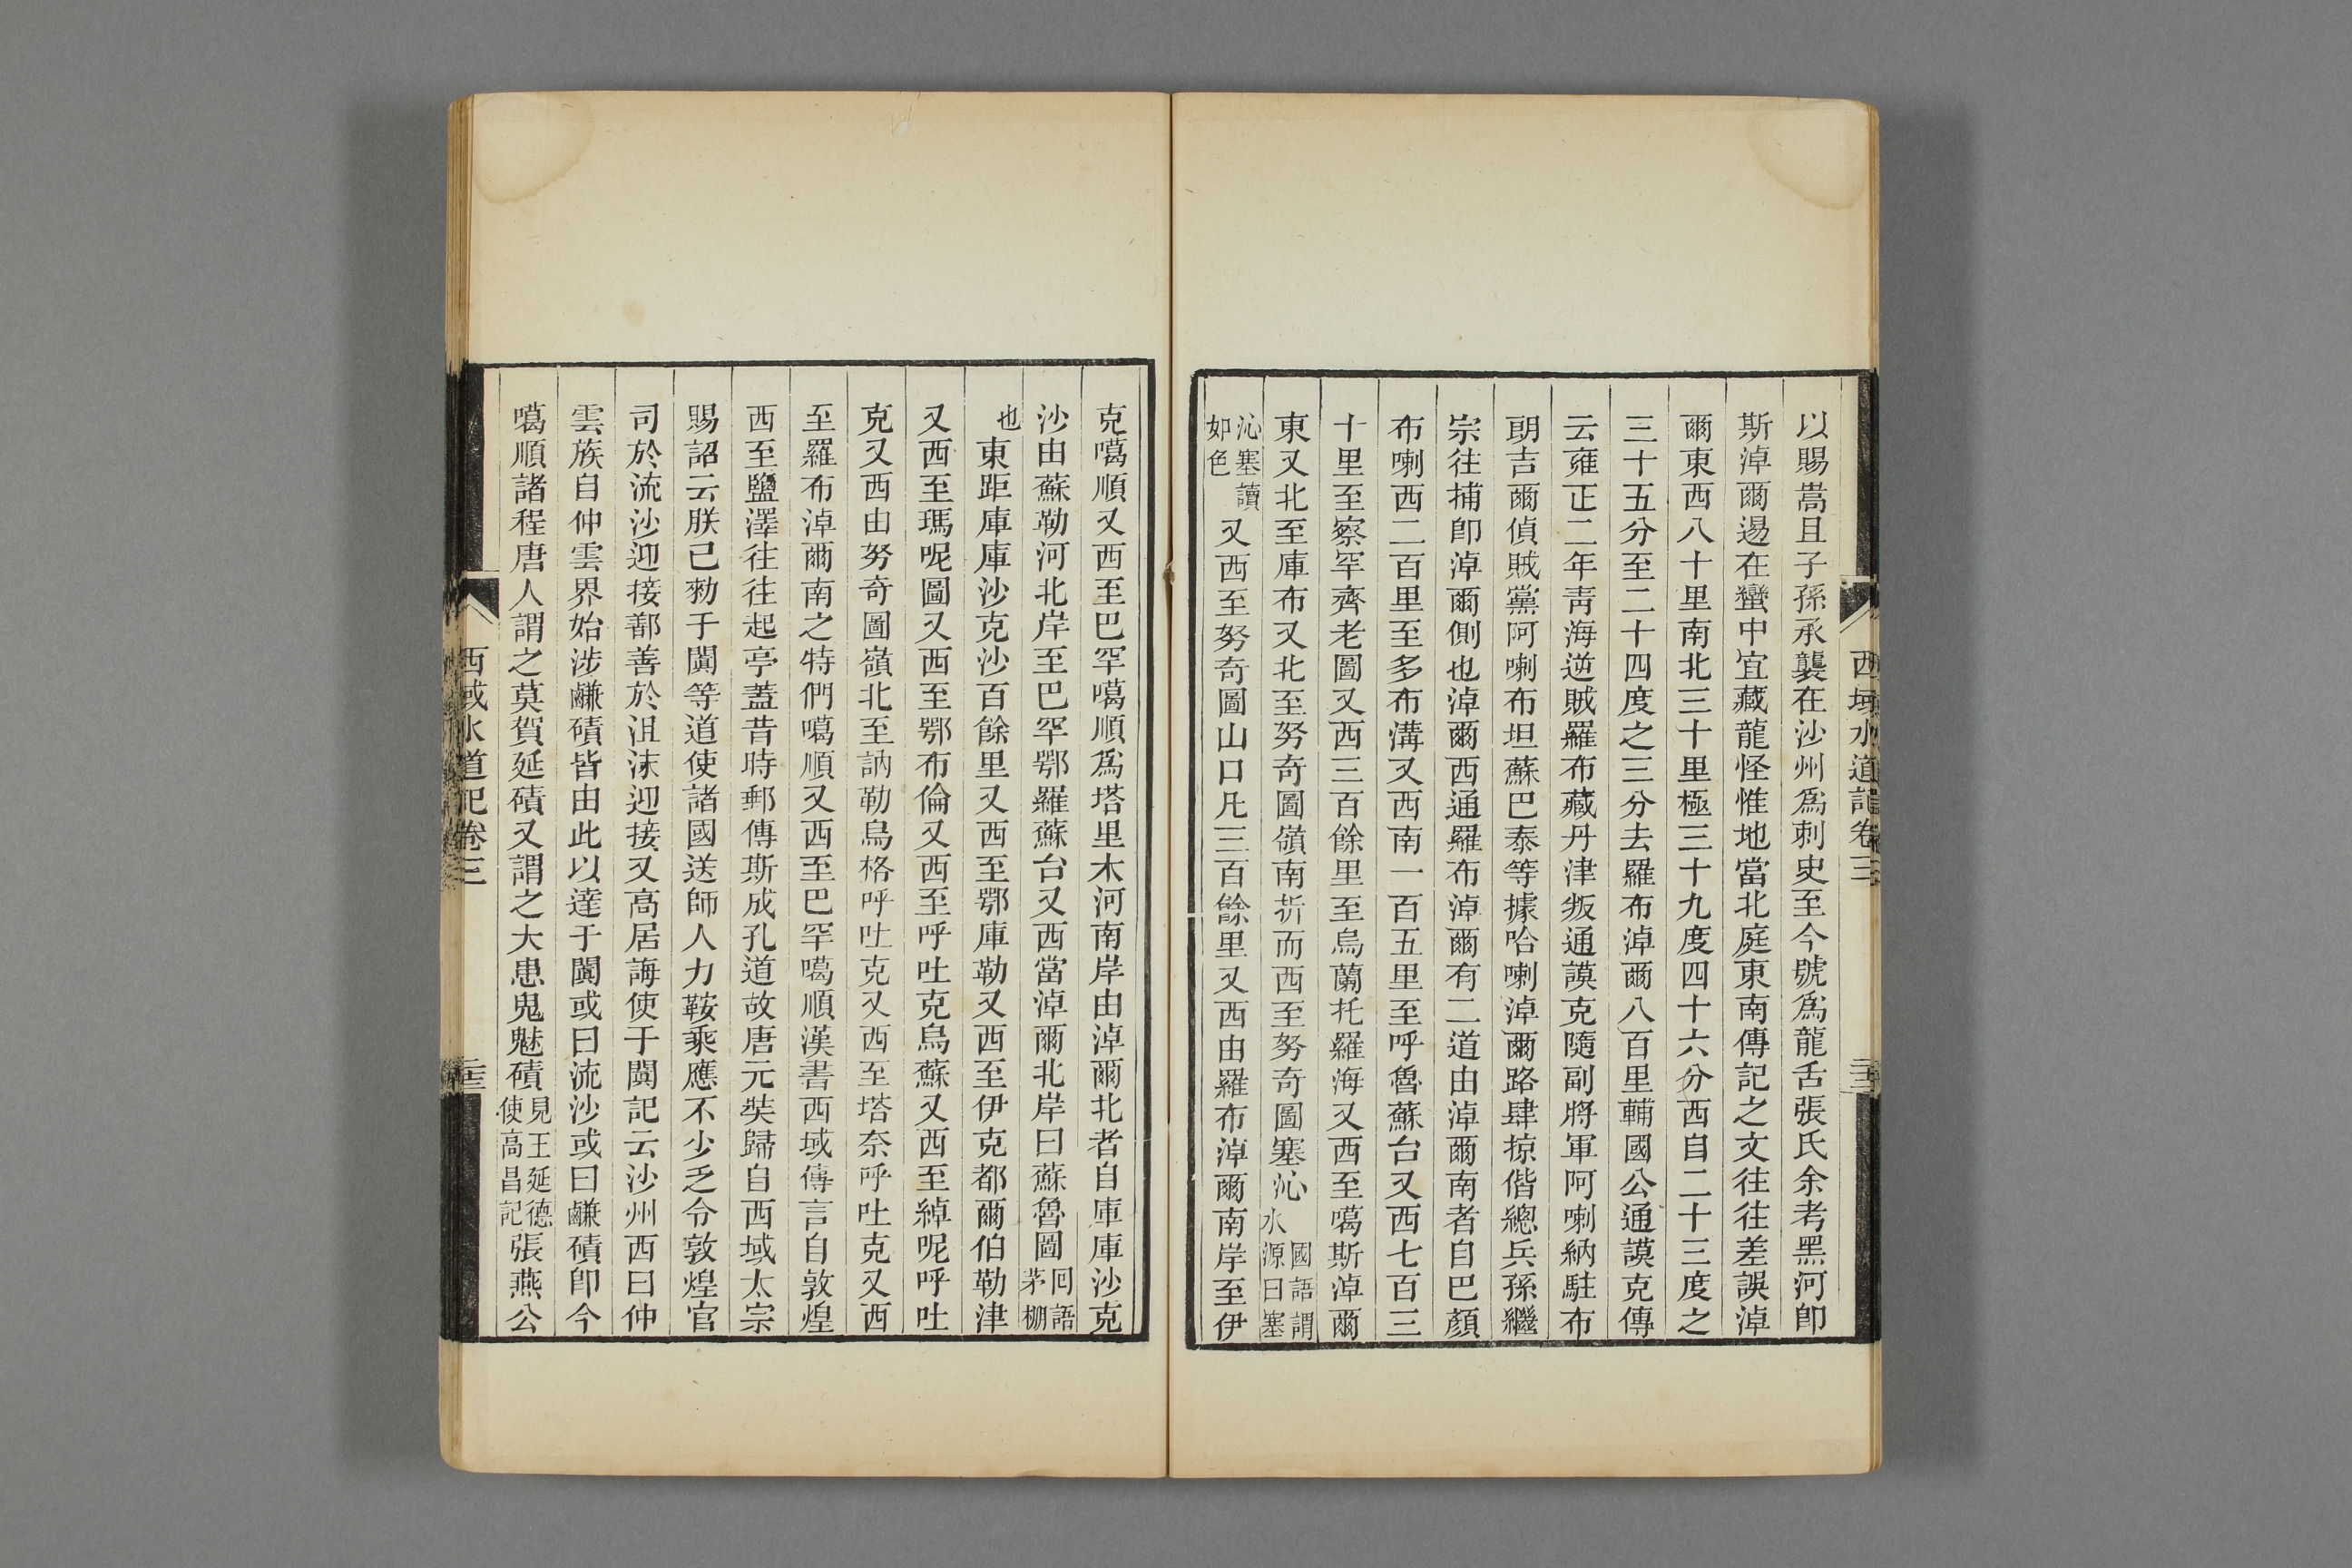 西域水道記卷三
二十三
以賜嵩且子孫承襲在沙州爲刺史至今號爲龍舌張氏余考黑河卽
斯淖爾逷在蠻中宜藏龍怪惟地當北庭東南傳記之文往往差誤淖
爾東西八十里南北三十里極三十九度四十六分西自二十三度之
三十五分至二十四度之三分去羅布淖爾八百里輔國公通謨克傳
云雍正二年靑海逆賊羅布藏丹津叛通謨克隨副將軍阿喇納駐布
朗吉爾偵賊黨阿喇布坦蘇巴泰等據哈喇淖爾路肆掠偕總兵孫繼
宗往捕卽淖爾側也淖爾西通羅布淖爾有二道由淖爾南者自巴顏
布喇西二百里至多布溝又西南一百五里至呼魯蘇台又西七百三
十里至察罕齊老圖又西三百餘里至烏蘭托羅海又西至噶斯淖爾
東又北至庫布又北至努奇圖嶺南折而西至努奇圖塞沁國語謂水源曰塞
沁塞讀如色又西至努奇圖山口凡三百餘里又西由羅布淖爾南岸至伊
克噶順又西至巴罕噶順爲塔里木河南岸由淖爾北者自庫庫沙克
沙由蘇勒河北岸至巴罕鄂羅蘇台又西當淖爾北岸曰蘇魯圖囘語茅棚
也東距庫庫沙克沙百餘里又西至鄂庫勒又西至伊克都爾伯勒津
又西至瑪呢圖又西至鄂布倫又西至呼吐克烏蘇又西至綽呢呼吐
克又西由努奇圖嶺北至訥勒烏格呼吐克又西至塔奈呼吐克又西
至羅布淖爾南之特們噶順又西至巴罕噶順漢書西域傳言自敦煌
西至鹽澤往往起亭蓋昔時郵傳斯成孔道故唐元奘歸自西域太宗
賜詔云朕已勑于闐等道使諸國送師人力鞍乘應不少乏令敦煌官
司於流沙迎接鄯善於沮沫迎接又高居誨使于闐記云沙州西曰仲
雲族自仲雲界始涉鹻磧皆由此以達于闐或曰流沙或曰鹻磧卽今
噶順諸程唐人謂之莫賀延磧又謂之大患鬼魅磧見王延德使高昌記張燕公
西域水道記卷三
二十三